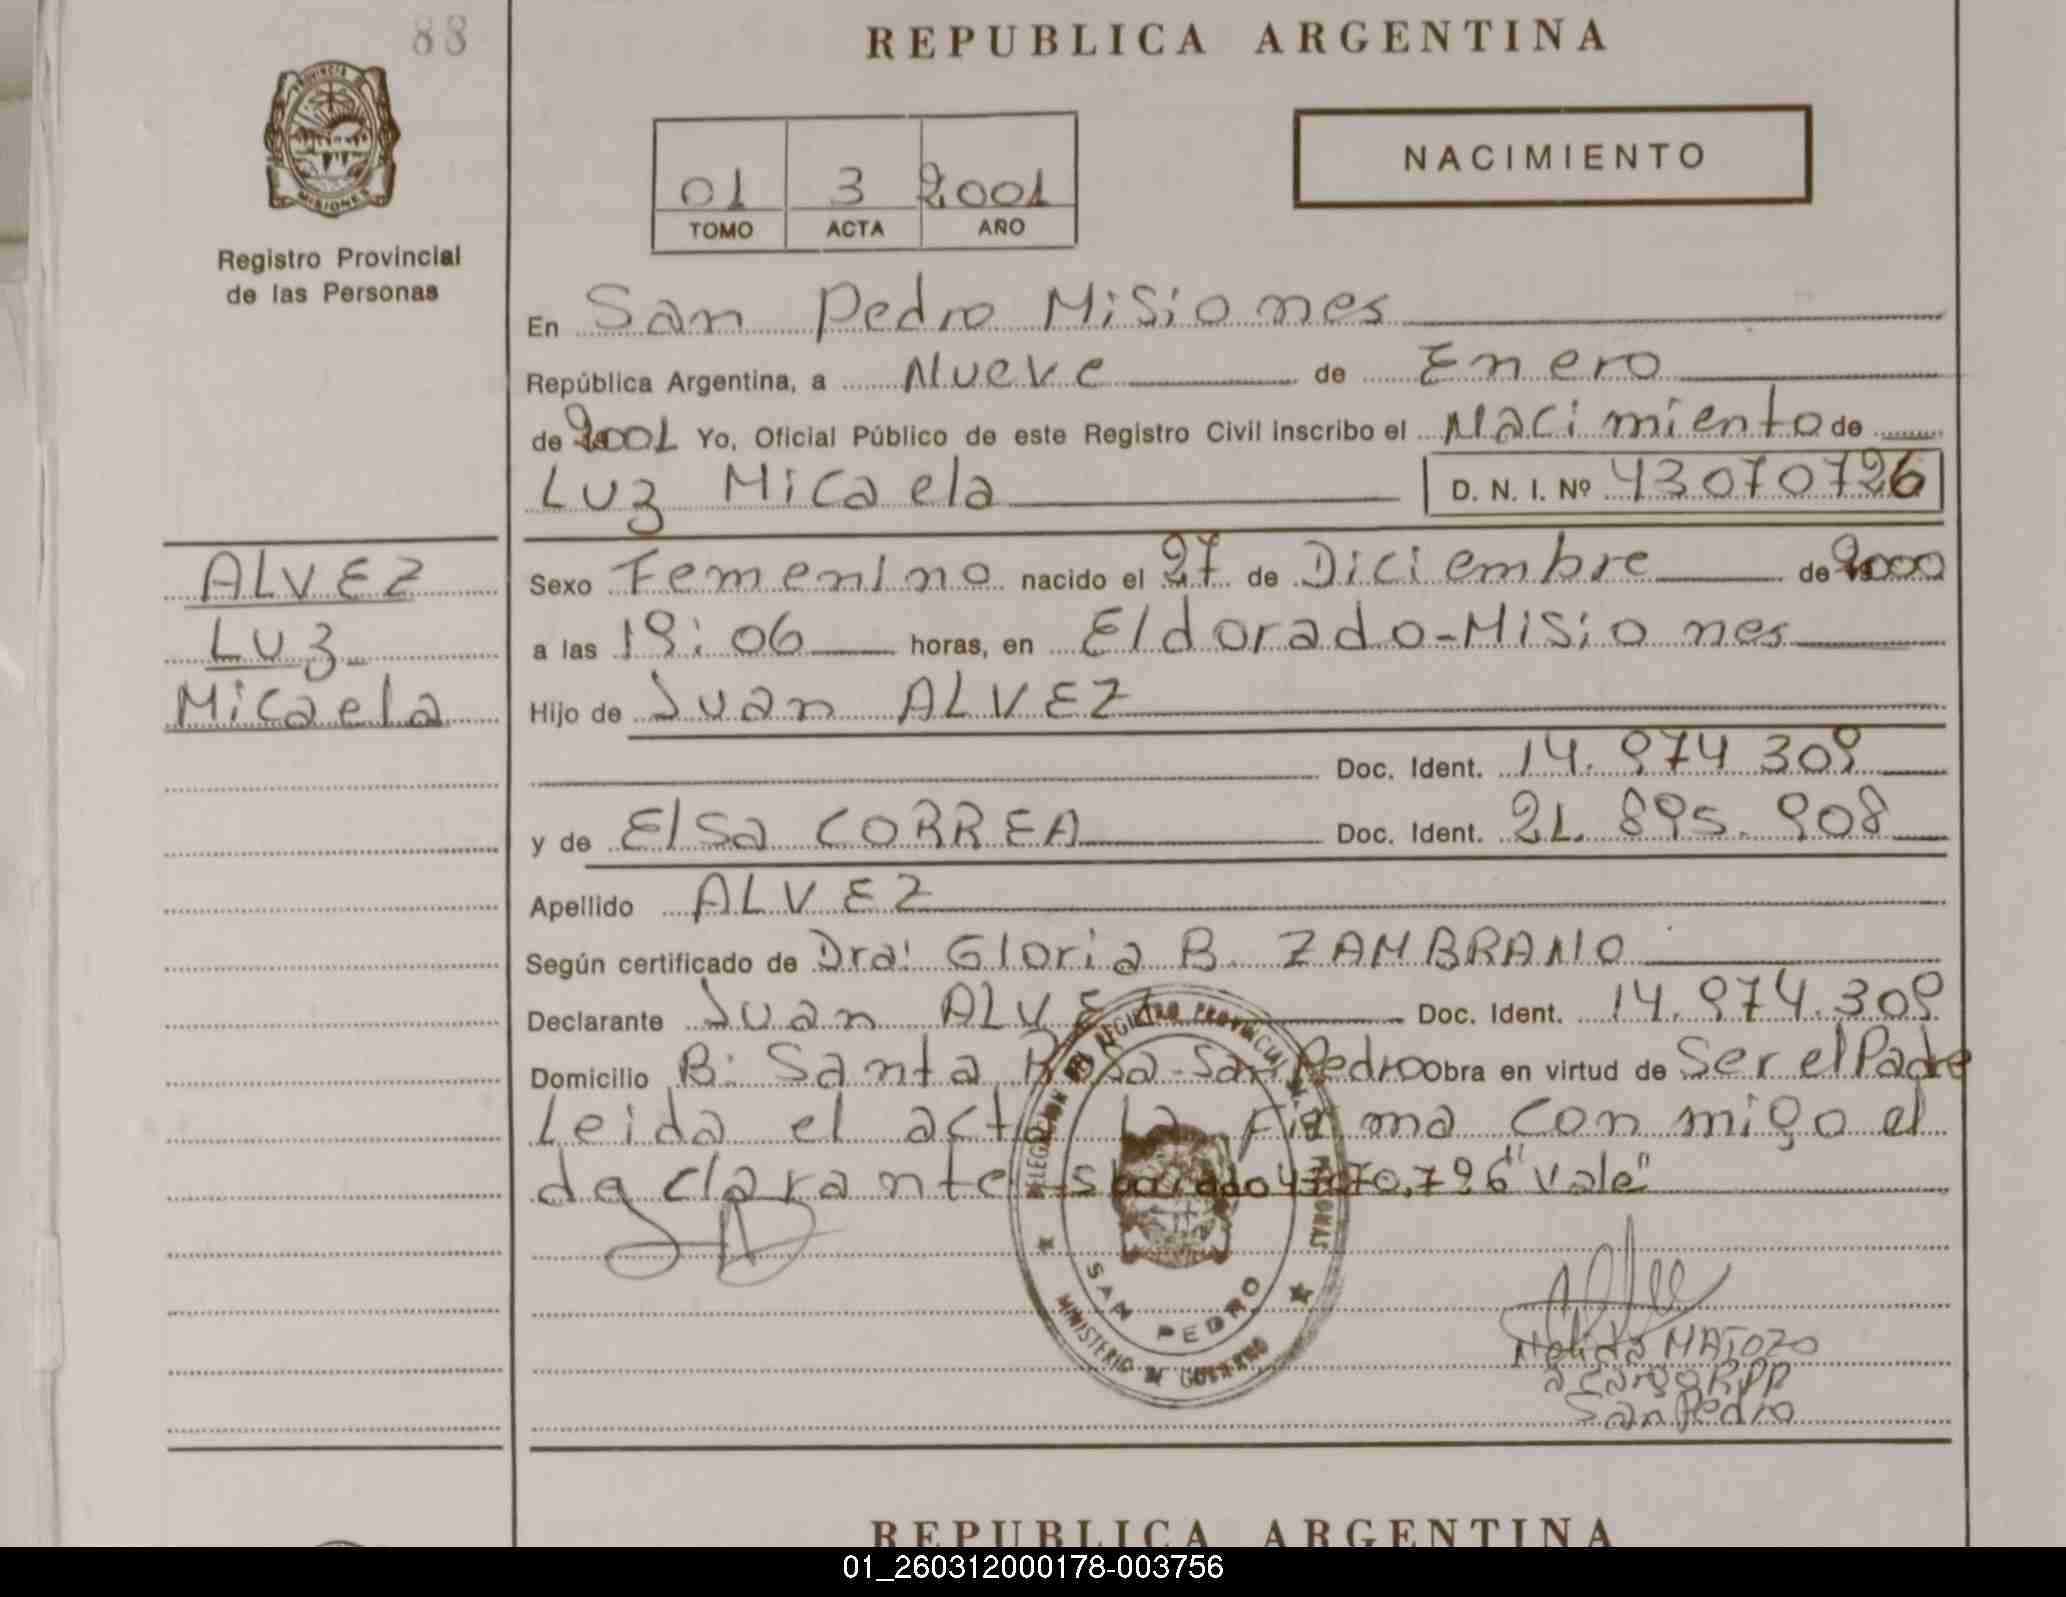 88
REPUBLICA ARGENTINA
PROVINCIA DE
MISIONES
Registro Provincial
de las Personas
NACIMIENTO
01 3 2001
TOMO ACTA AÑO
En San Pedro Misiones
República Argentina, a Nueve de Enero
de 2001 Yo, Oficial Público de este Registro Civil inscribo el Nacimiento de
Luz Micaela D. N. I. Nº 43070726
ALVEZ
Luz
Micaela
Sexo Femenino nacido el 27 de Diciembre de 2000
a las 19:06 horas, en Eldorado-Misiones
Hijo de Juan ALVEZ
Doc. Ident. 14.974 309
y de Elsa CORREA Doc. Ident. 21.895.908
Apellido ALVEZ
Según certificado de Dra: Gloria B. ZAMBRANO
Declarante Juan ALVEZ Doc. Ident. 14.974.309
Domicilio B: Santa Rosa-San Pedro Obra en virtud de Ser el Padre
Leida el acta la Firma con migo el
declarante "Vale"
DELEGACION DEL REGISTRO PROVINCIAL DE LAS PERSONAS
SAN PEDRO
MINISTERIO DE GOBIERNO
Nelida MATOZO
a cargo RPP
San Pedro
REPUBLICA ARGENTINA
01_260312000178-003756